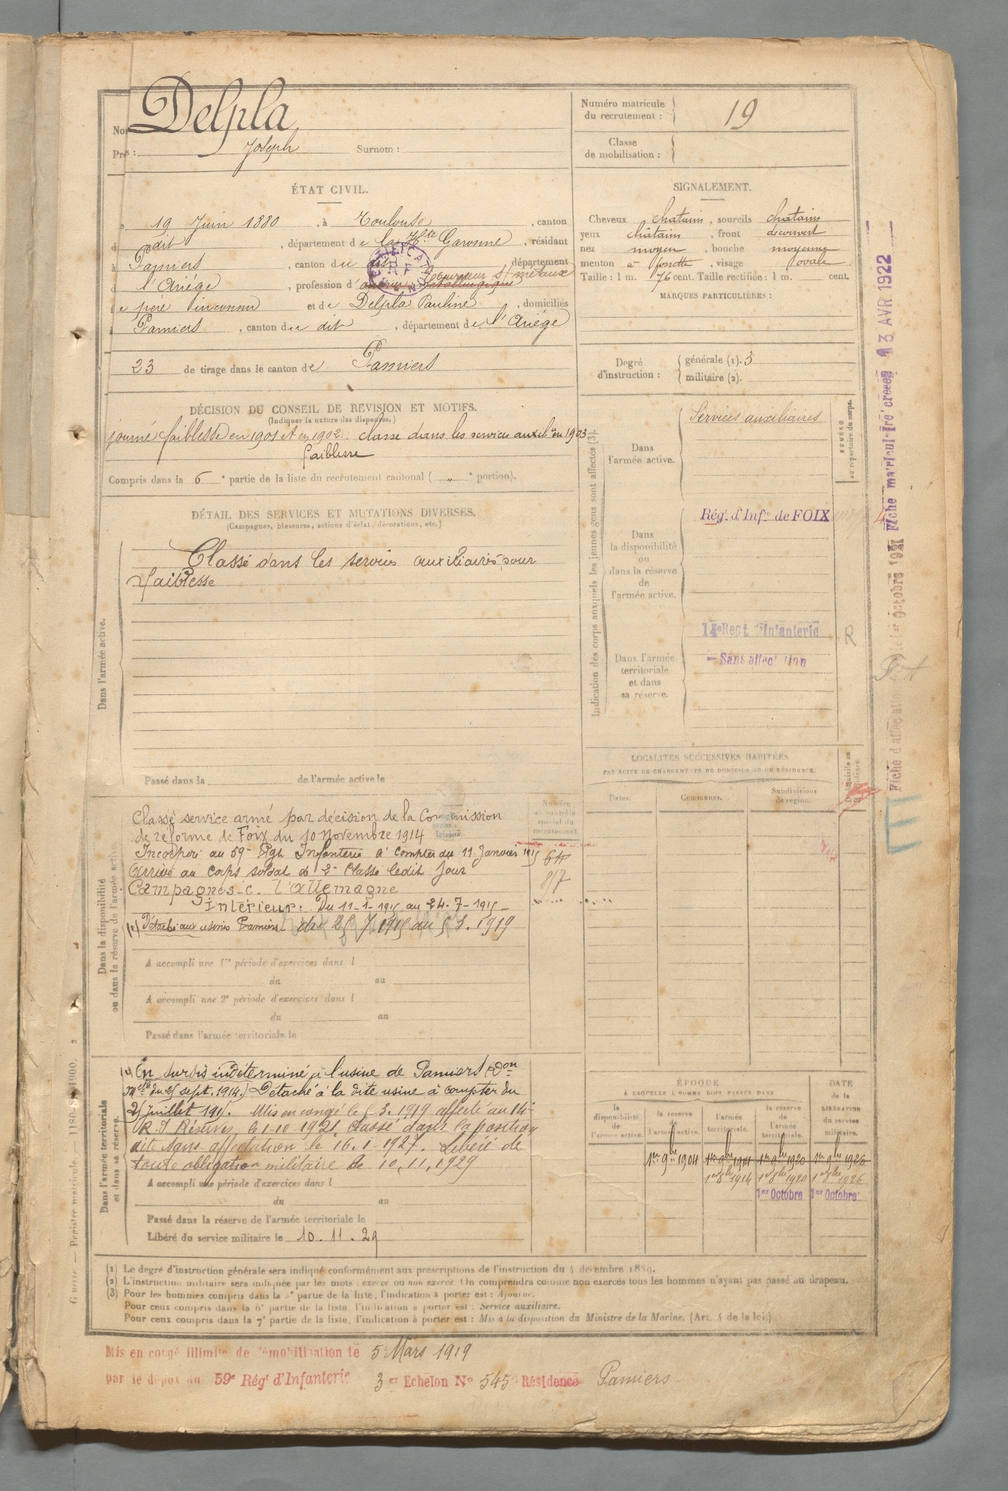 Nom : Delpla
Prén : Joseph Surnom :
Numéro matricule du recrutement : 19
Classe de mobilisation :
ÉTAT CIVIL.
19 Juin 1880, à Toulouse, canton
dudit, département de la Hte Garonne, résidant
à Pamiers, canton du dit, département
l'Ariège, profession d' ouvrier s/ métaux
de père inconnu et de Delpla Pauline, domiciliés
Pamiers, canton du dit, département de l'Ariège
23 de tirage dans le canton de Pamiers
SIGNALEMENT.
Cheveux chatain, sourcils chatains
yeux châtain, front découvert
nez moyen, bouche moyenne
menton à fossette, visage ovale
Taille : 1 m. 76 cent. Taille rectifiée : 1 m. cent.
MARQUES PARTICULIÈRES :
Degré d'instruction : générale (1). 3
militaire (2).
DÉCISION DU CONSEIL DE RÉVISION ET MOTIFS.
(Indiquer la nature des dispenses.)
journé faiblesse en 1901 et en 1902. classé dans les services auxil. en 1903
faiblesse
Compris dans la 6e partie de la liste du recrutement cantonal ( " e portion).
DÉTAIL DES SERVICES ET MUTATIONS DIVERSES.
(Campagnes, blessures, actions d'éclat, décorations, etc.)
Dans l'armée active.
Classé dans les services auxiliaires pour
faiblesse
Passé dans la de l'armée active le
Indication des corps auxquels les jeunes gens sont affectés (3).
Dans l'armée active.
Services auxiliaires
Dans la disponibilité ou dans la réserve de l'armée active.
Rég. d'Infie de FOIX
Dans l'armée territoriale et dans sa réserve.
14e Regt d'Infanterie
Sans affectation
R
Fiche matricule créée 13 AVR 1922
LOCALITÉS SUCCESSIVES HABITÉES
PAR SUITE DE CHANGEMENTS DE DOMICILE OU DE RÉSIDENCE.
Dates. Communes. Subdivisions de région.
Dans la disponibilité ou dans la réserve de l'armée active.
Classé service armé par décision de la Commission
de réforme de Foix du 10 novembre 1914
Incorporé au 59e Rgt Infanterie à compter du 11 Janvier 1915
Arrivé au corps soldat de 2e Classe ledit jour
Campagnes c. l'Allemagne
Intérieur: Du 11-1-1915 au 24-7-1915
(1) Détaché aux usines Pamiers du 25 7 1915 au 5 3. 1919
64
817
A accompli une 1re période d'exercices dans l
du au
A accompli une 2e période d'exercices dans l
du au
Passé dans l'armée territoriale le
Dans l'armée territoriale et dans sa réserve.
(1) En sursis indéterminé à l'usine de Pamiers (Don
Mlle du 25 sept. 1914.) Détaché à la dite usine à compter du
25 Juillet 1915. Mis en congé le 5 3. 1919 affecté au 14e
R.I Réserve, le 1-10 1921. Classé dans la position
dite sans affectation le 16. 1. 1927. Libéré de
toute obligation militaire le 10.11.1929
A accompli une période d'exercices dans l
du au
Passé dans la réserve de l'armée territoriale le
Libéré du service militaire le 10. 11. 29
ÉPOQUE
À LAQUELLE L'HOMME DOIT PASSER DANS
la disponibilité de l'armée active. la réserve de l'armée active. l'armée territoriale. la réserve de l'armée territoriale. DATE de la LIBÉRATION du service militaire.
1er 9bre 1904
1er 8bre 1914 1er 8bre 1920 1er 8bre 1926
1er Octobre 1er Octobre
(1) Le degré d'instruction générale sera indiqué conformément aux prescriptions de l'instruction du 4 décembre 1889.
(2) L'instruction militaire sera indiquée par les mots : exercé ou non exercé. On comprendra comme non exercés tous les hommes n'ayant pas passé au drapeau.
(3) Pour les hommes compris dans la 5e partie de la liste, l'indication à porter est : Ajourné.
Pour ceux compris dans la 6e partie de la liste, l'indication à porter est : Service auxiliaire.
Pour ceux compris dans la 7e partie de la liste, l'indication à porter est : Mis à la disposition du Ministre de la Marine. (Art. 4 de la loi.)
Mis en congé illimité de démobilisation le 5 Mars 1919
par le dépôt du 59e Régt d'Infanterie 3er Echelon No 545 Résidence Pamiers